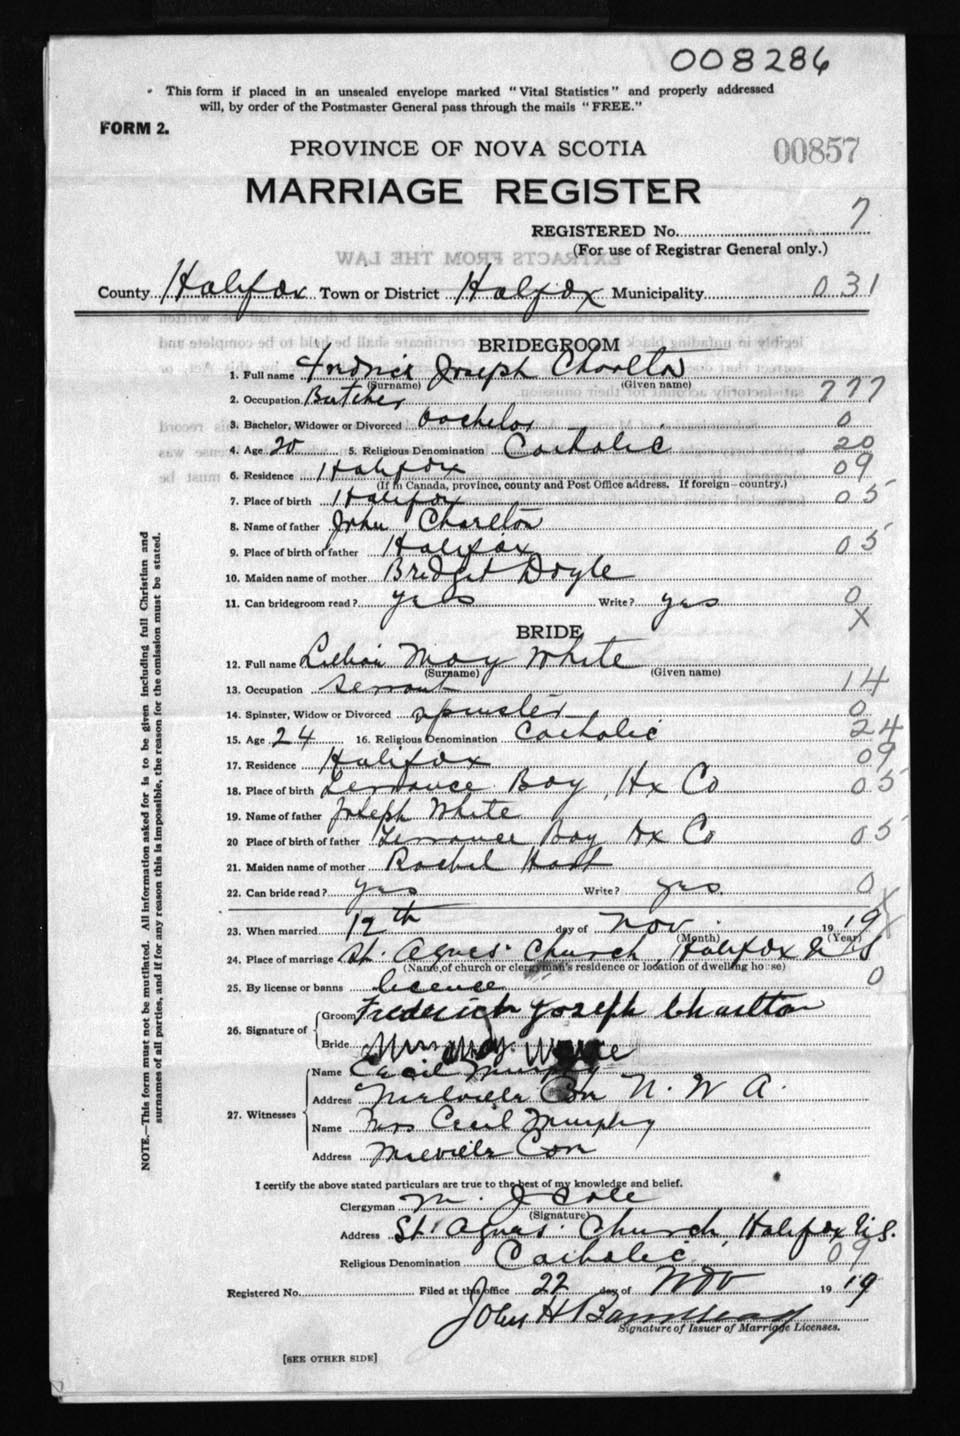 008286
This form if placed in an unsealed envelope marked "Vital Statistics" and properly addressed
will, by order of the Postmaster General pass through the mails "FREE."
FORM 2.
PROVINCE OF NOVA SCOTIA
00857
MARRIAGE REGISTER
REGISTERED No. 7
(For use of Registrar General only.)
EXTRACTS FROM THE LAW
County Halifax Town or District Halifax Municipality 031
BRIDEGROOM
1. Full name Joseph Charlton
(Surname) (Given name)
2. Occupation Butcher 777
3. Bachelor, Widower or Divorced bachelor 0
4. Age 20 5. Religious Denomination Catholic 20
6. Residence Halifax 09
(If in Canada, province, county and Post Office address. If foreign—country.)
7. Place of birth Halifax 05
8. Name of father John Charlton
9. Place of birth of father Halifax 05
10. Maiden name of mother Bridget Doyle
11. Can bridegroom read? yes Write? yes 0
X
BRIDE
12. Full name May White
(Surname) (Given name)
13. Occupation Servant 14
14. Spinster, Widow or Divorced spinster 0
15. Age 24 16. Religious Denomination Catholic 24
17. Residence Halifax 09
18. Place of birth Terrance Bay, Hx Co 05
19. Name of father Joseph White
20 Place of birth of father Terrance Bay Hx Co 05
21. Maiden name of mother Rachel
22. Can bride read? yes Write? yes. 0
X
23. When married 12th day of Nov. 1919
(Month) (Year)
24. Place of marriage St. Agnes' Church, Halifax N S
(Name of church or clergyman's residence or location of dwelling house)
25. By license or banns license 0
26. Signature of
Groom Frederick Joseph Charlton
Bride
27. Witnesses
Name Cecil Murphy
Address Con N. W. A.
Name Mrs Cecil Murphy
Address Con
I certify the above stated particulars are true to the best of my knowledge and belief.
Clergyman M. J Cole
(Signature)
Address St. Agnes' Church, Halifax N.S.
Religious Denomination Catholic 09
Registered No. Filed at this office 22 day of Nov 1919
John H
Signature of Issuer of Marriage Licenses.
[SEE OTHER SIDE]
NOTE.—This form must not be mutilated. All information asked for is to be given including full Christian and
surnames of all parties, and if for any reason this is impossible, the reason for the omission must be stated.